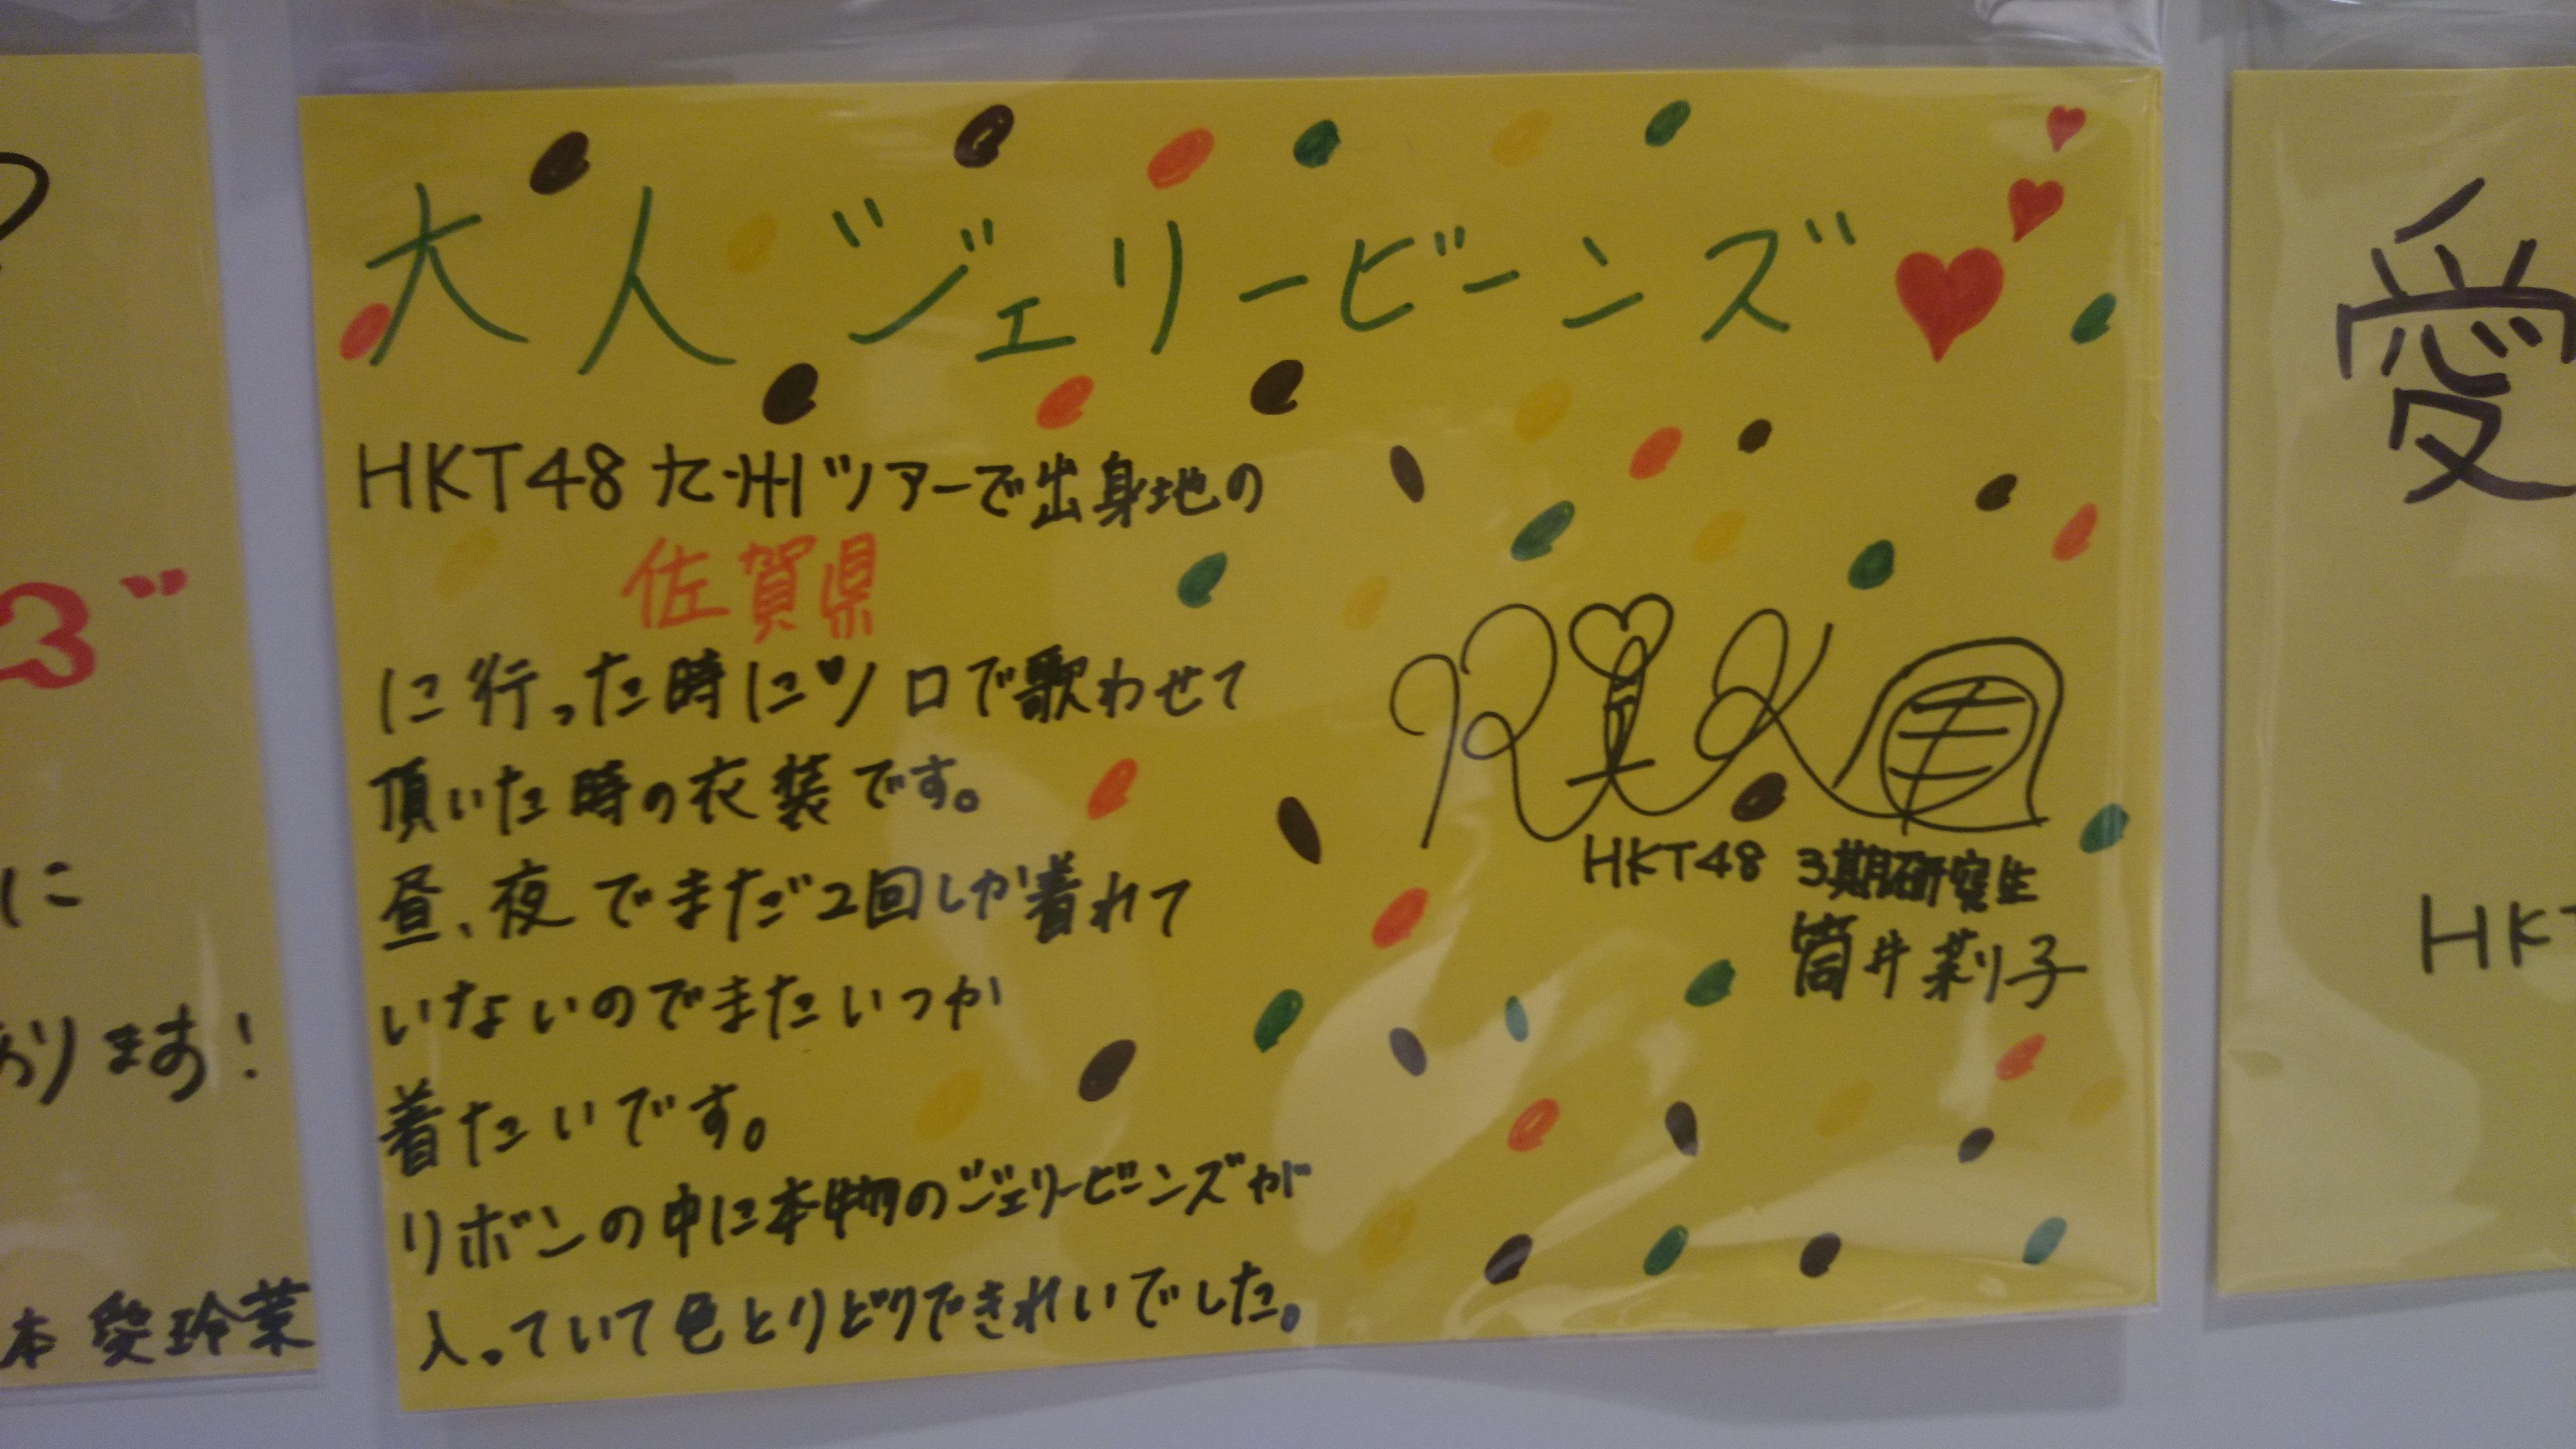 大人ジェリービーンズ♥
HKT48 九州ツアーで出身地の
佐賀県
に行った時に♥ソロで歌わせて
頂いた時の衣装です。
昼、夜でまだ2回しか着れて
いないのでまたいつか
着たいです。
リボンの中に本物のジェリービーンズが
入っていて色とりどりできれいでした。
HKT48 3期研究生
筒井莉子
3"
に
あります!
本 愛玲菜
愛
HKT